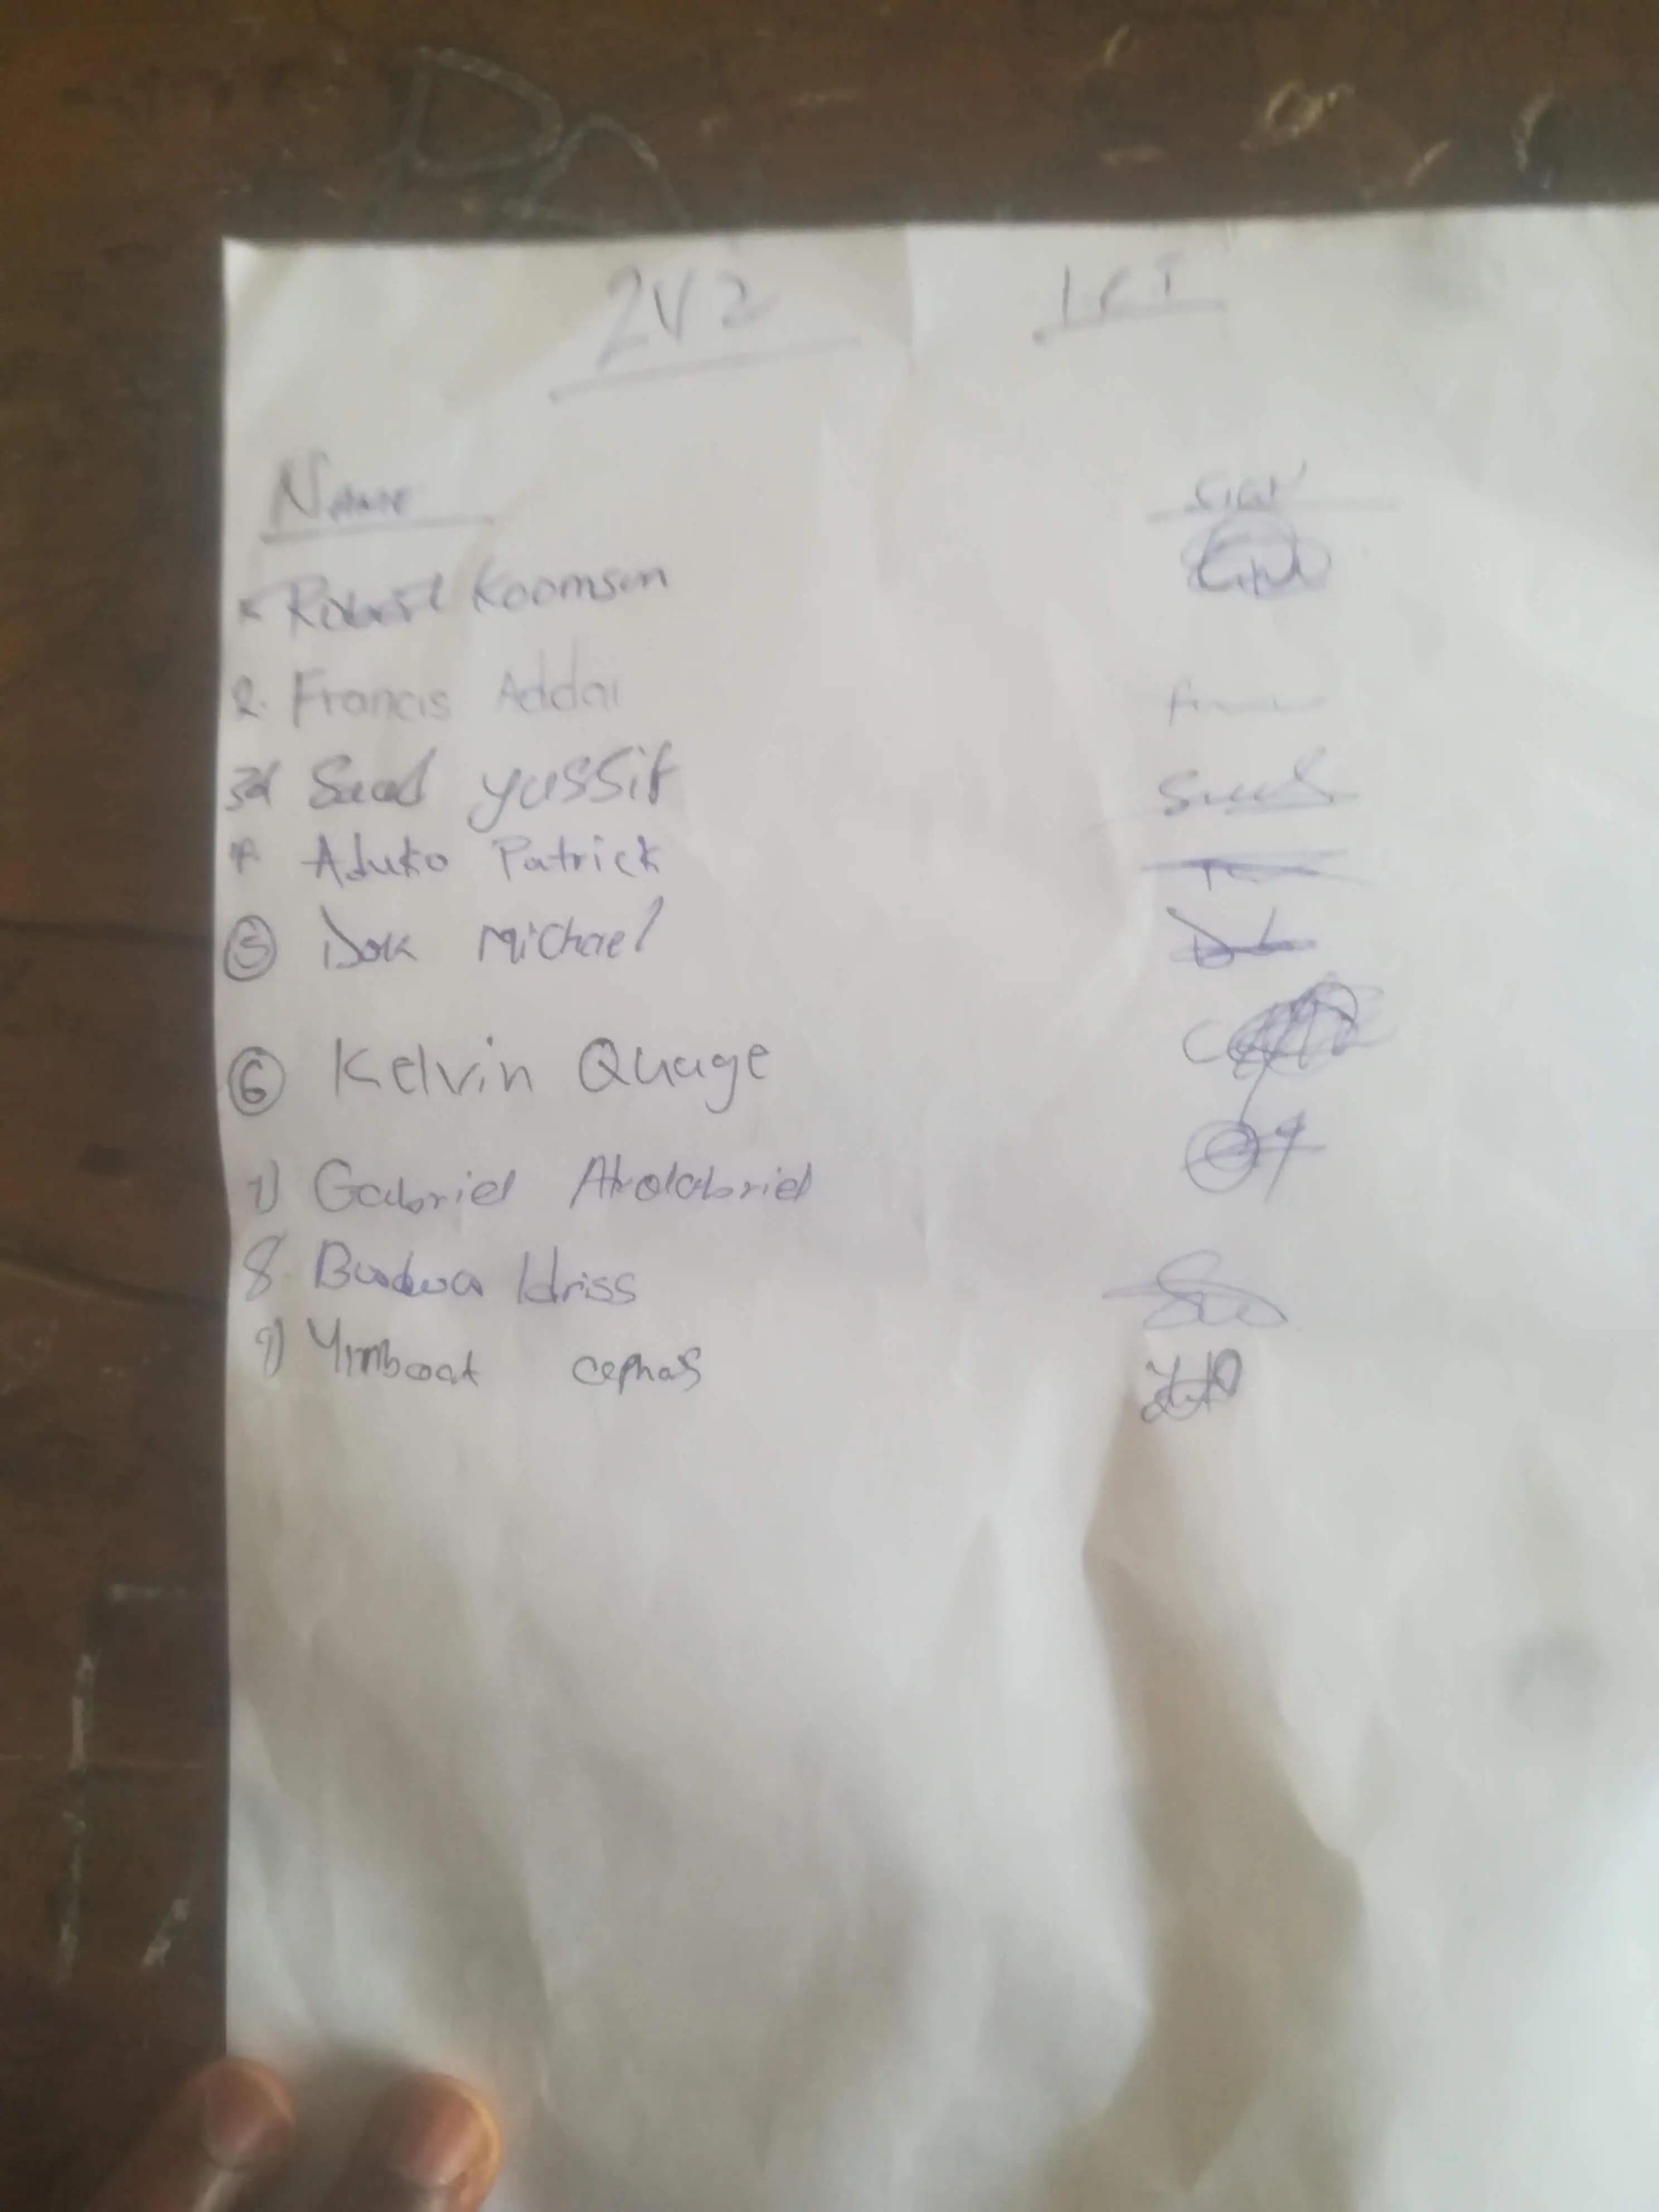 2V2 ICT
Name Sign
Robert Koomson
2. Francis Addai
3. Saad Yussif
4. Aduko Patrick
5 Dok Michael
6 Kelvin Quaye
7) Gabriel
8. Idriss
9) cephas